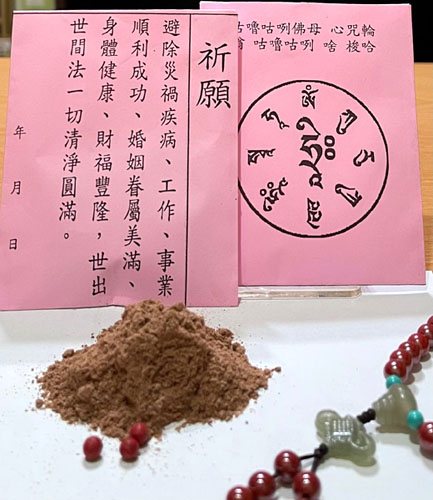 祈願
避除災禍疾病、工作、事業
順利成功、婚姻眷屬美滿、
身體健康、財福豐隆，世出
世間法一切清淨圓滿。
年 月 日
咕嚕咕咧佛母 心咒輪
嗡 咕嚕咕咧 啥 梭哈